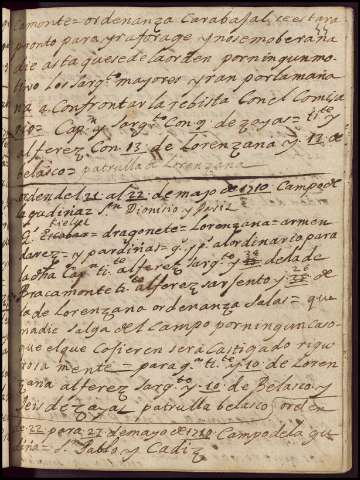 camonte = ordenanza Carabajal, se estara
pronto para yr a forage y no se mobera na
die asta que se de la orden por ningun mo
tivo los sargtos mayores yran por la maña
na a Confrontar la rebista Con el Comisa
rio = Capn y Sargto Con 9 de zayas = tte y
alferez Con 13 de Lorenzana y 12 de
belasco = patrulla de Lorenzana
orden del 21 al 22 de mayo de 1710 Campo de
la gudiña = Sn Dionisio y Paris
dragonete = Lorenzana = armen
darez = y pardiñas = para
la dha Capn tte alferez Sargto y de la de
bracamonte tte alferez sarjento y 26 de
la de Lorenzano ordenanza Salas = que
nadie salga del Campo por ningun caso
que el que cojieren sera Castigado rigu
rosamente = para gn tte y 10 de Loren
zana alferez Sargto y 10 de Belasco y
seis de zayas patrulla belasco orden
de 22 para 23 de mayo de 1710 Campo de la gu
diña = Sn Pablo y Cadiz